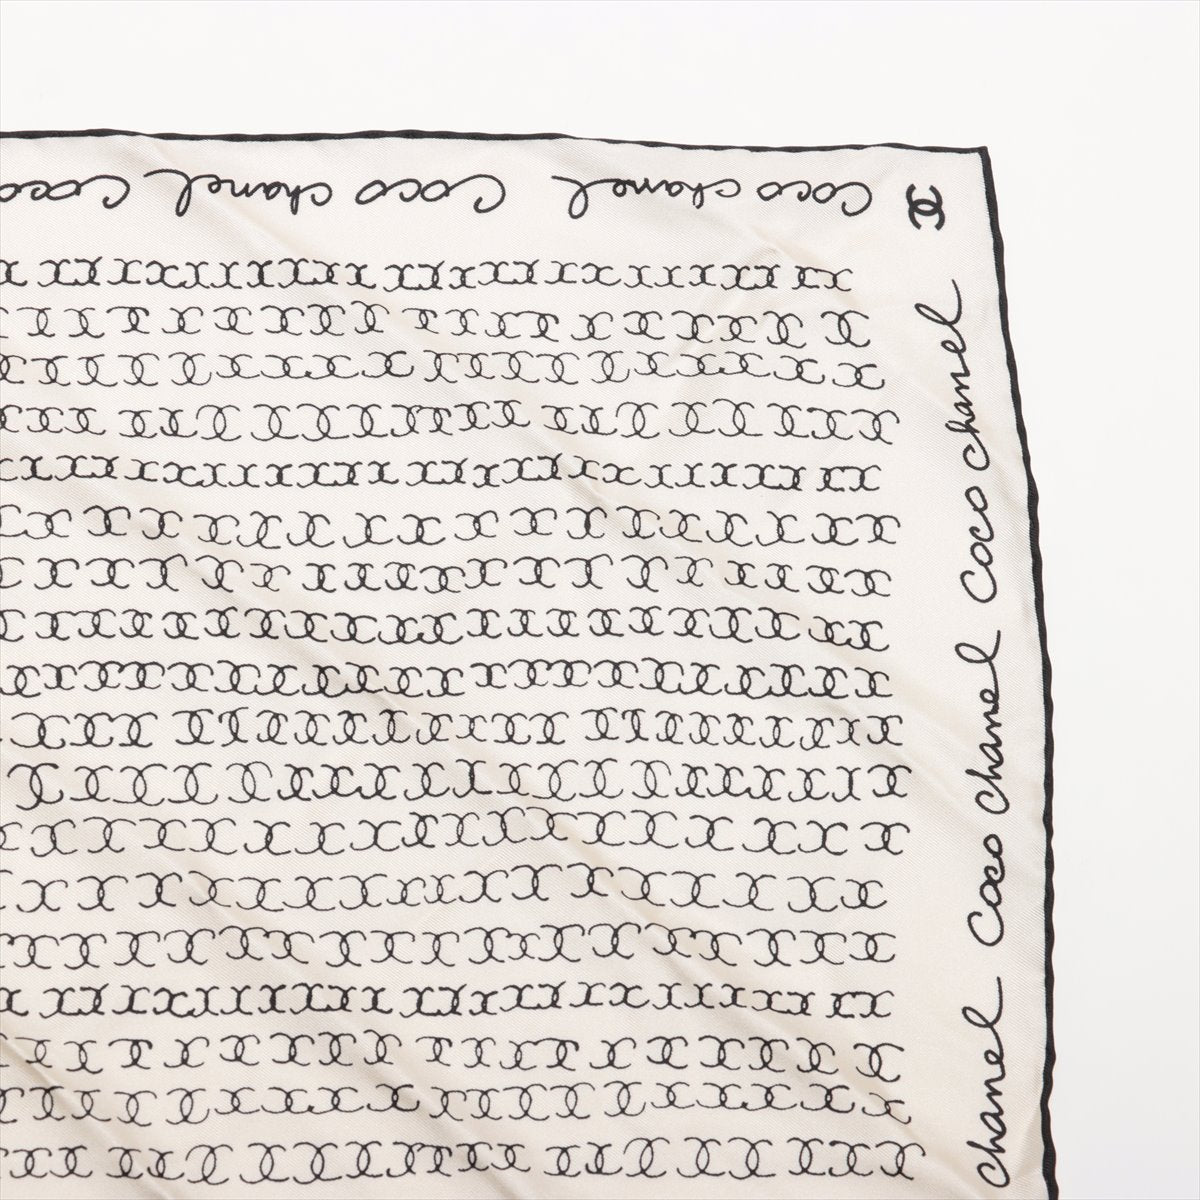 Coco Coco chanel Coco chanel
chanel Coco chanel Coco chanel